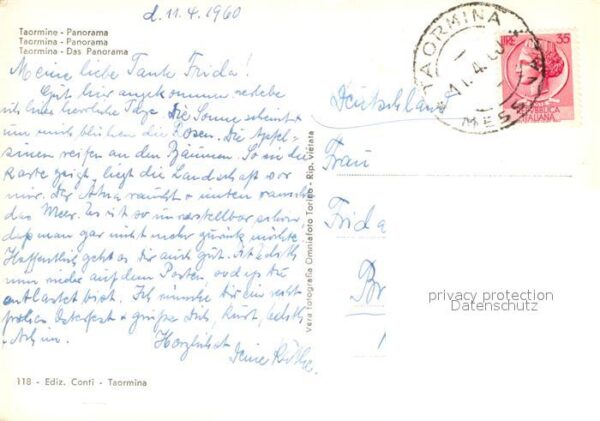 d. 11. 4. 1960
Taormine - Panorama
Taormina - Panorama
Taormina - Das Panorama
Meine liebe Tante Frida!
Gut hier angekommen
ich herrliche Tage. Die Sonne scheint +
um mich blühen die Rosen. Die Apfel=
sinen reifen an den Bäumen. So wie die
Karte zeigt, liegt die Landschaft vor
mir. Der Ätna raucht + unten rauscht
das Meer. Es ist so unvorstellbar schön
daß man gar nicht mehr zurück möchte.
Hoffentlich geht es dir auch gut.
auf dem Posten
entlastet bist. Ich wünsche Dir ein recht
frohes Osterfest + grüße Dich, Kurt,
Herzlichst
Deine Käthe
118 - Ediz. Conti - Taormina
Vera fotografia Omniafoto Torino - Rip. Vietata
TAORMINA
MESSINA
11.4.60
LIRE 35
REPUBBLICA
ITALIANA
Deutschland
Frau
Frida
privacy protection
Datenschutz